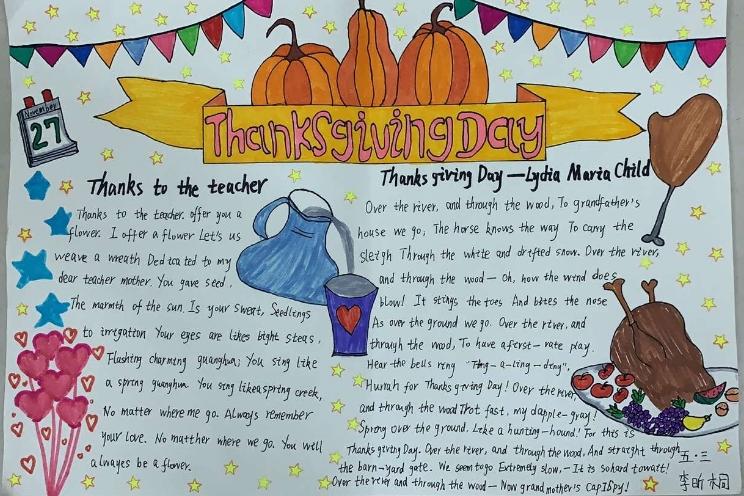 November
27
Thanksgiving Day
Thanks to the teacher
Thanks to the teacher. offer you a
flower. I offer a flower Let's us
weave a wreath Dedicated to my
dear teacher mother. You gave seed.
The marmth of the sun. Is your sweat, Seedlings
to irrgation Your eyes are likes bight steas,
Flashing charming guanghua; You sing like
a spring guanghua You sing likeaspring creek,
No matter where me go. Always remember
your love. No matther where we go. You will
always be a flover.
Thanks giving Day — Lydia Maria Child
Over the river, and through the wood, To grandfather's
house we go; The horse knows the way To carry the
sleigh Through the white and drifted snow. Over the river,
and through the wood— Oh, how the wind does
blow! It stings the toes And bites the nose
As over the ground we go. Over the river, and
through the wood, To have a first-rate play.
Hear the bells ring "Ting-a-ling-ding",
Hurrah for Thanksgiving Day! Over the river,
and through the wood Trot fast, my dapple-gray!
Spring over the ground, Like a hunting-hound! For this is
Thanksgiving Day. Over the river, and through the wood, And straight through
the barn-yard gate. We seem to go Extremely slow,— It is so hard to wait!
Over the river and through the wood— Now grandmother's cap I spy!
五·三
李昕桐